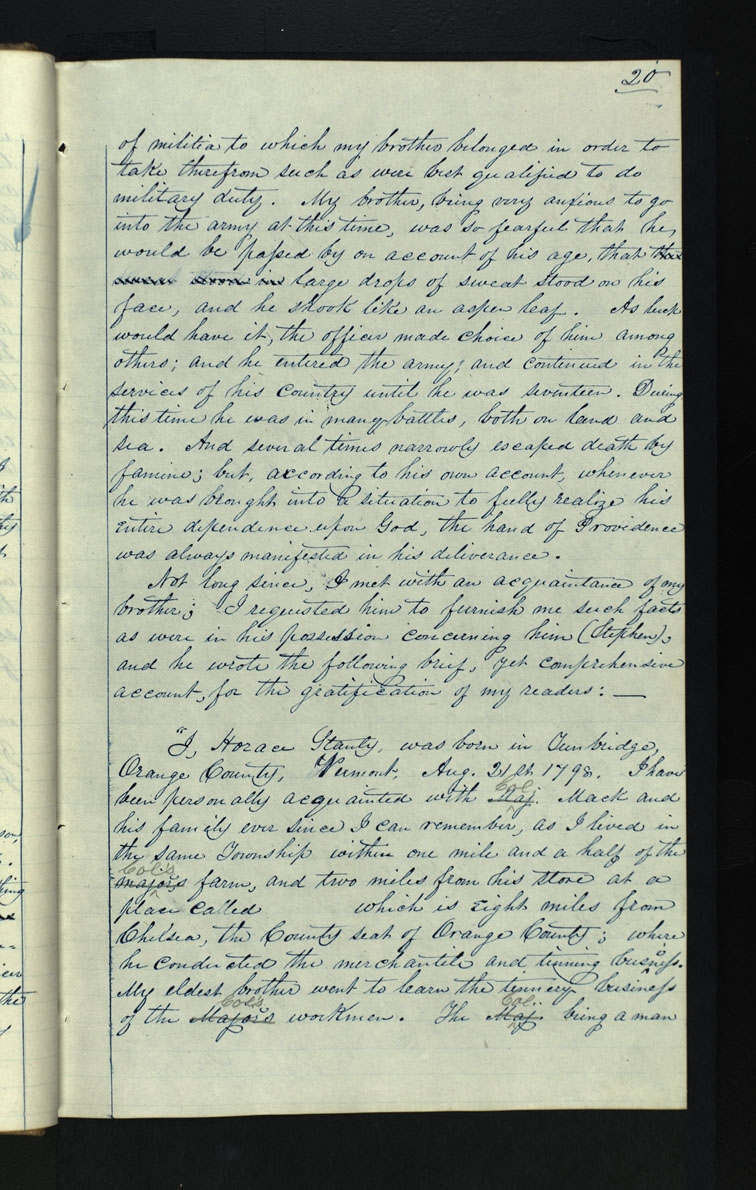 20
of militia to which my brother belonged in order to
take therefrom such as were best qualified to do
military duty. My brother, being very anxious to go
into the army at this time, was so fearful that he,
would be passed by on account of his age, that the
in large drops of sweat stood on his
face, and he shook like an aspen leaf. As luck
would have it, the officer made choice of him among
others; and he entered the army; and contenued in the
services of his Country until he was seventeen. During
this time he was in many battles, both on land and
sea. And several times narrowly escaped death by
famine; but, according to his own account, whenever
he was brought into a situation to fully realize his
entire dependence upon God, the hand of Providence
was always manifested in his deliverance.
Not long since, I met with an acquaintance of my
brother; I requested him to furnish me such facts
as were in his possession concerning him (Stephen);
and he wrote the following brief, yet comprehensive
account, for the gratification of my readers: —
"I, Horace Stanly, was born in Tunbridge,
Orange County, Vermont, Aug. 21st. 1798. I have
been personally acquainted with Maj. Col. Mack and
his family ever since I can remember, as I lived in
the same Township within one mile and a half of the
major's Col's farm, and two miles from his store at a
place called which is eight miles from
Chelsea, the County seat of Orange County; where
he conducted the merchantile and tinning business.
My eldest brother went to learn the tinnery business
of the Major's Col's workmen. The Maj. Col. being a man